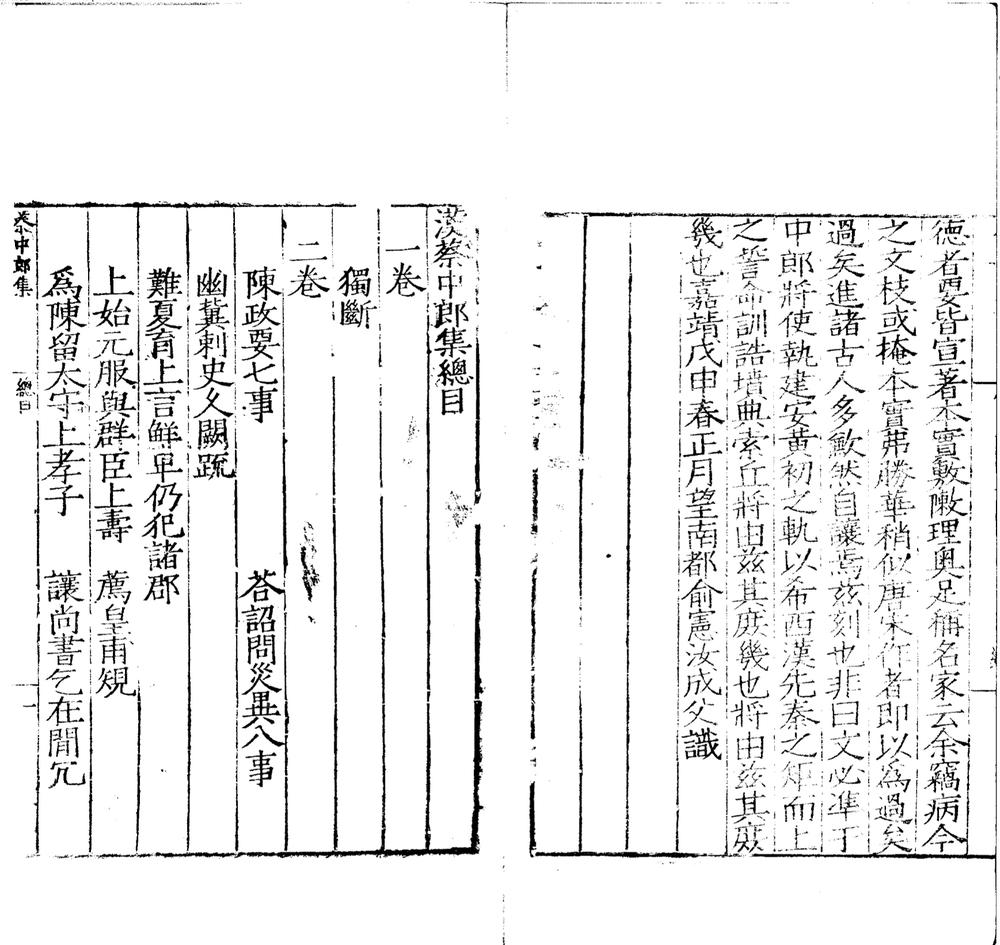 德者要皆宣著本實敷敶理奧足稱名家云余竊病今
之文枝或掩本實弗勝華稍似唐宋作者即以爲過矣
過矣進諸古人多歉然自讓焉茲刻也非曰文必準于
中郎將使執建安黃初之軌以希西漢先秦之矩而上
之誓命訓誥墳典索丘將由茲其庶幾也將由茲其庶
幾也嘉靖戊申春正月望南都俞憲汝成父識
漢蔡中郎集總目
一卷
獨斷
二卷
陳政要七事 荅詔問災異八事
幽冀刺史久闕疏
難夏育上言鮮卑仍犯諸郡
上始元服與群臣上壽 薦皇甫規
爲陳留太守上孝子 讓尚書乞在閒冗
蔡中郎集 總目 一